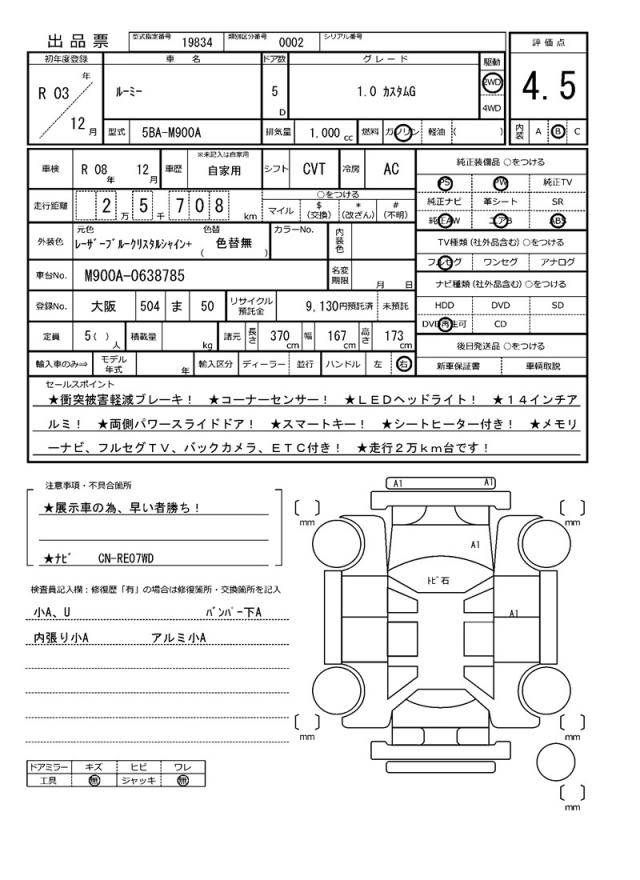 出品票
型式指定番号 19834 類別区分番号 0002 シリアル番号
初年度登録 車名 ドア数 グレード 駆動 評価点
R 03 年 12 月 ルーミー 5 D 1.0 カスタムG 2WD 4WD 4.5
型式 5BA-M900A 排気量 1.000 cc 燃料 ガソリン 軽油 ( ) 内装 A B C
車検 R 08 年 12 月 車歴 ※未記入は自家用 自家用 シフト CVT 冷房 AC
走行距離 2 万 5 千 7 0 8 km ○をつける マイル $ (交換) * (改ざん) # (不明)
外装色 元色 レーザーブルークリスタルシャイン+ 色替 ( 色替無 ) カラーNo. 内装色
車台No. M900A-0638785 名変期限 月 日
登録No. 大阪 504 ま 50 リサイクル預託金 9,130円預託済 未預託
定員 5( ) 人 積載量 kg 諸元 長さ 370 cm 幅 167 cm 高さ 173 cm
輸入車のみ⇒ モデル年式 年 輸入区分 ディーラー 並行 ハンドル 左 右
純正装備品 ○をつける
PS PW 純正TV
純正ナビ 革シート SR
純正AW エアB ABS
TV種類 (社外品含む) ○をつける
フルセグ ワンセグ アナログ
ナビ種類 (社外品含む) ○をつける
HDD DVD SD
DVD再生可 CD
後日発送品 ○をつける
新車保証書 車輌取説
セールスポイント
★衝突被害軽減ブレーキ! ★コーナーセンサー! ★LEDヘッドライト! ★14インチア
ルミ! ★両側パワースライドドア! ★スマートキー! ★シートヒーター付き! ★メモリ
ーナビ、フルセグTV、バックカメラ、ETC付き! ★走行2万km台です!
注意事項・不具合箇所
★展示車の為、早い者勝ち!
★ナビ CN-RE07WD
検査員記入欄:修復歴「有」の場合は修復箇所・交換箇所を記入
小A、U バンパー下A
内張り小A アルミ小A
ドアミラー キズ ヒビ ワレ
工具 無 ジャッキ 無
A1 A1
[ ] mm [ ] mm
A1
トビ石
A1
[ ] mm [ ] mm
[ ] mm